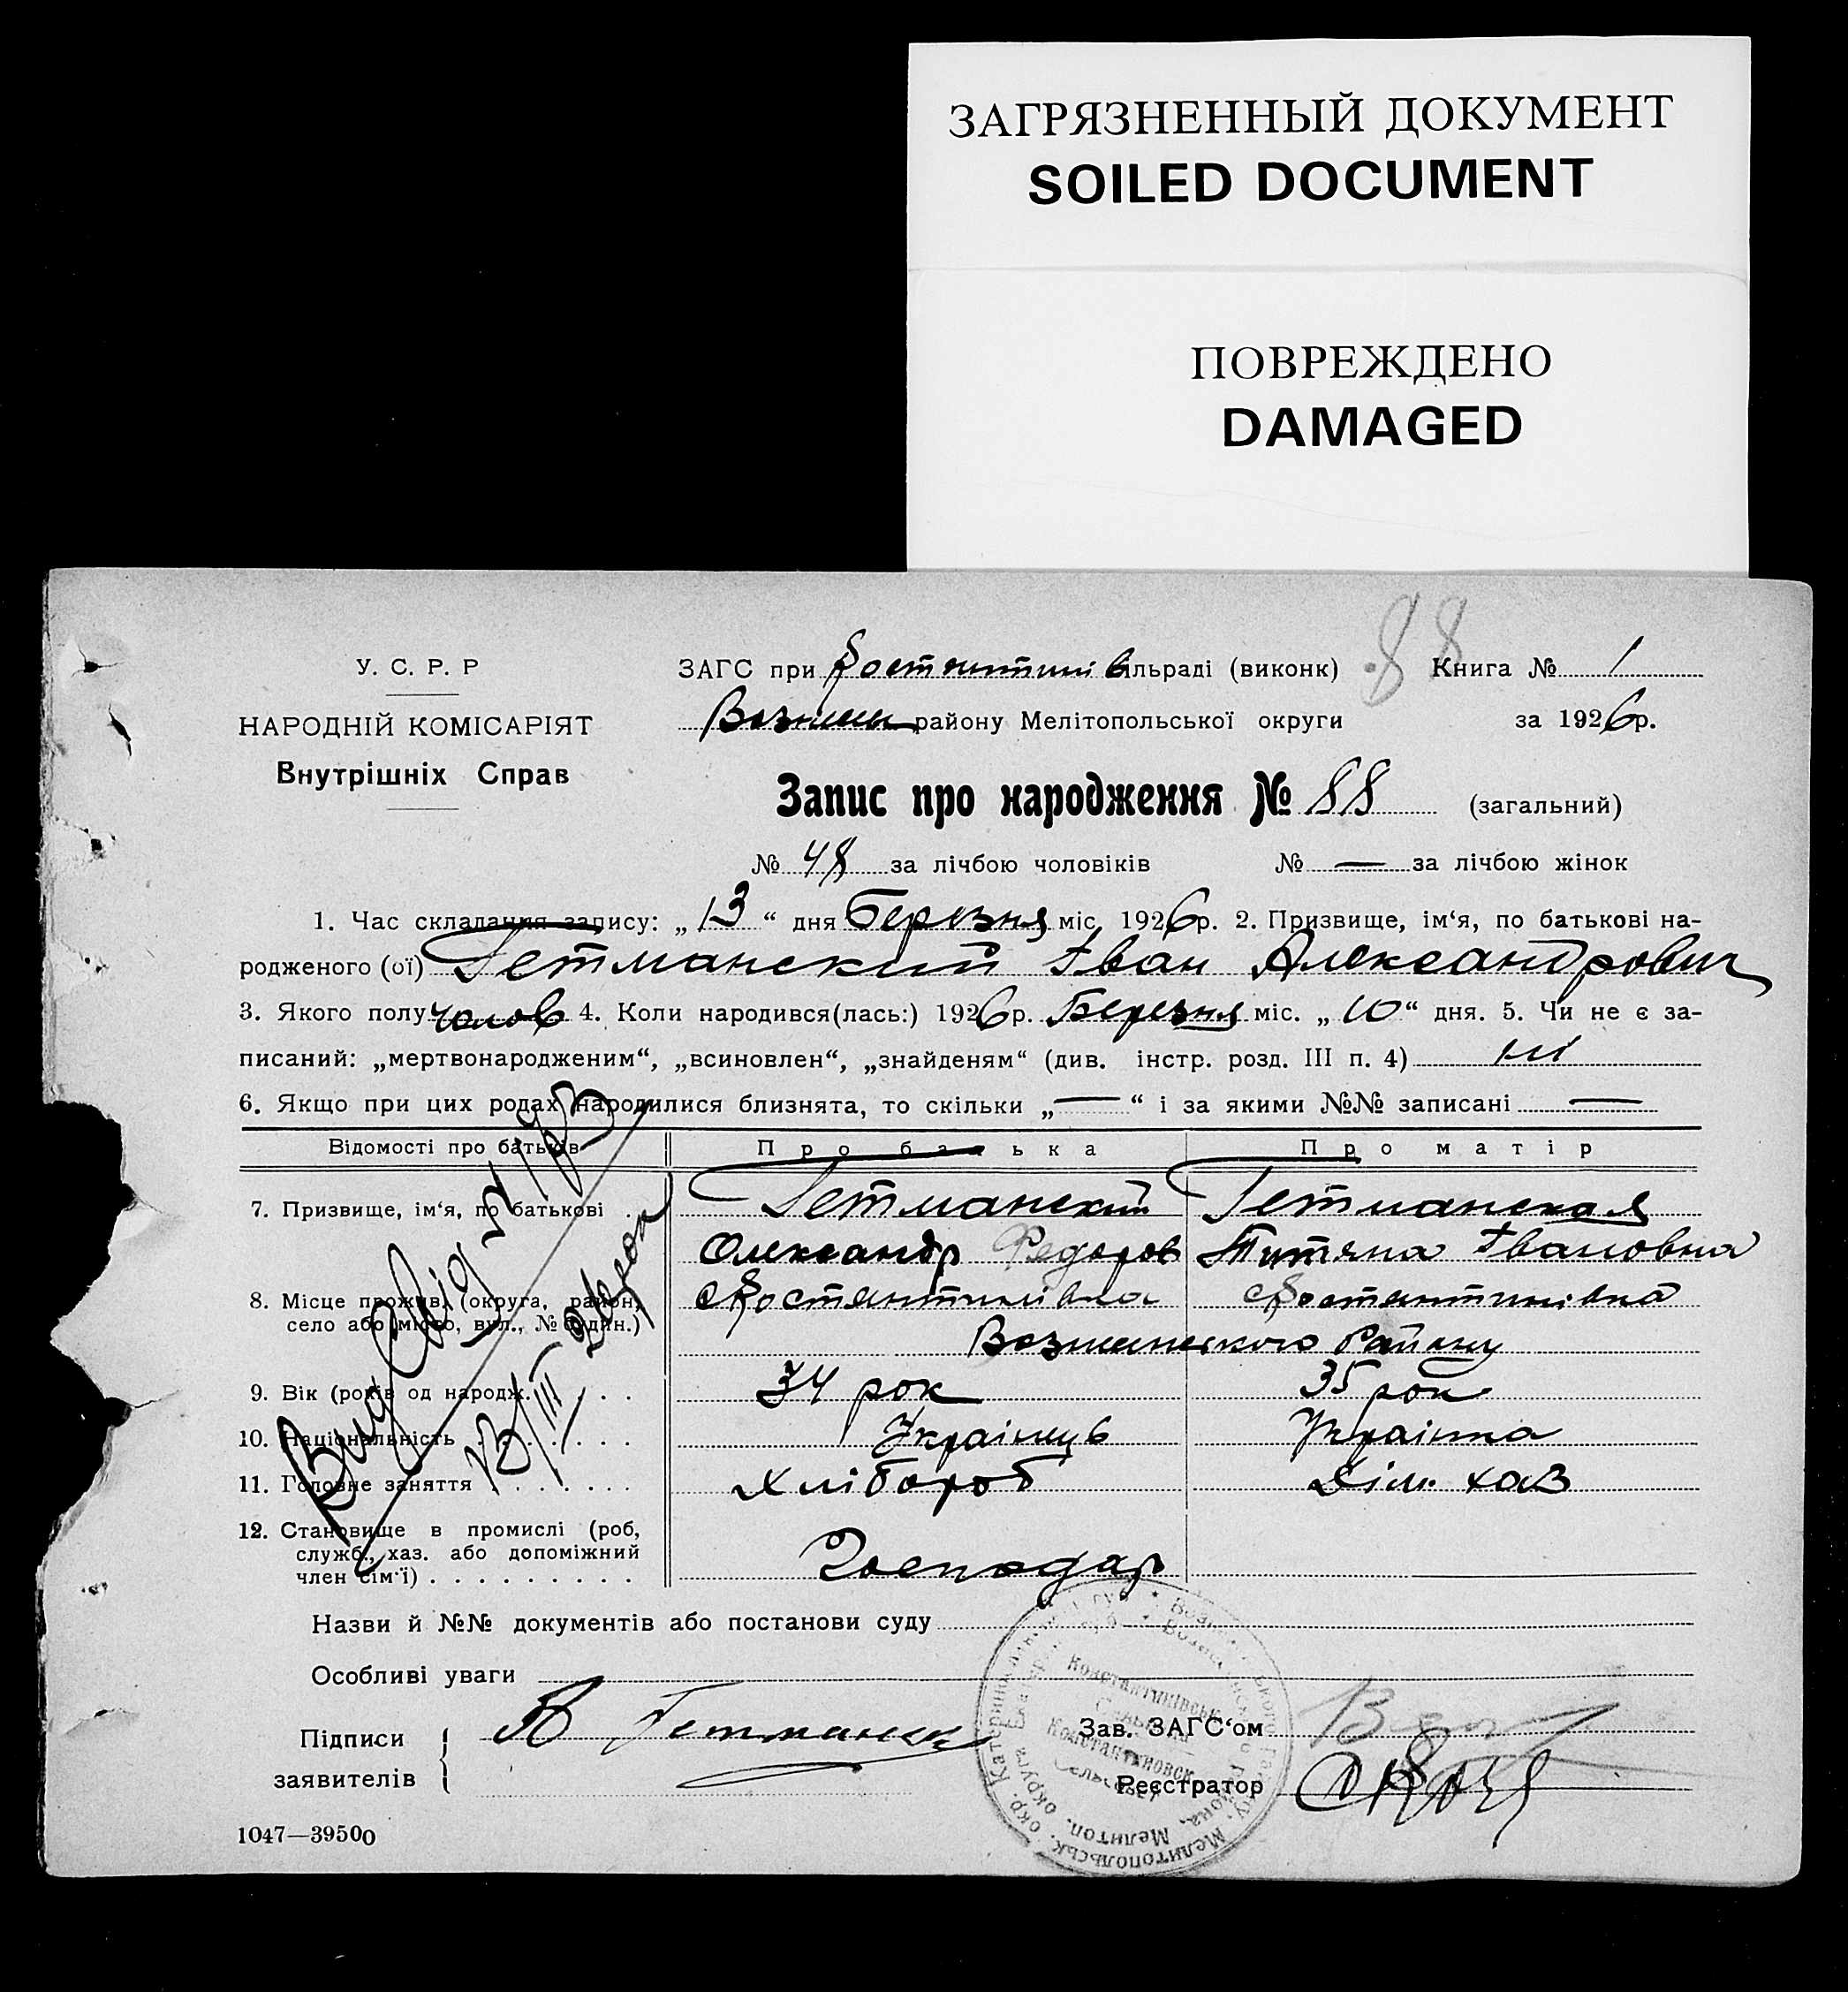 ЗАГРЯЗНЕННЫЙ ДОКУМЕНТ
SOILED DOCUMENT
ПОВРЕЖДЕНО
DAMAGED
88
У. С. Р. Р
НАРОДНІЙ КОМІСАРІЯТ
Внутрішніх Справ
ЗАГС при Костянтинів ільраді (виконк) Книга № 1
Вознесен району Мелітопольської округи за 1926р.
Запис про народження № 88 (загальний)
№ 48 за лічбою чоловіків № — за лічбою жінок
1. Час складання запису: „13“ дня Березня міс. 1926р. 2. Призвище, ім'я, по батькові на-
родженого (ої) Гетманский Іван Александрович
3. Якого полу чолов 4. Коли народився(лась:) 1926р. Березня міс. „10“ дня. 5. Чи не є за-
писаний: „мертвонародженим“, „всиновлен“, „знайденям“ (див. інстр. розд. III п. 4) ні
6. Якщо при цих родах народилися близнята, то скільки „—“ і за якими №№ записані —
Відомості про батьків Про батька Про матір
7. Призвище, ім'я, по батькові . . Гетманский Гетманская
Олександр Федоров Титяна Івановна
8. Місце прожив. (округа, район, с Костянтинівка с Костянтинівка
село або місто, вул., № будин.)
Вознесенського Району
9. Вік (років од народж. . . . 34 рок 35 рок
10. Національність . . . . . . . Українець Українка
11. Головне заняття . . . . . . Хлібороб Дім. хаз
12. Становище в промислі (роб,
служб., хаз. або допоміжний
член сім'ї) . . . . . . . . . Господар
Назви й №№ документів або постанови суду
Особливі уваги
Підписи
заявителів
А Гетманск
Зав. ЗАГС'ом
Реєстратор
Константинівськ
Константиновск
Сельсовет
1047—39500